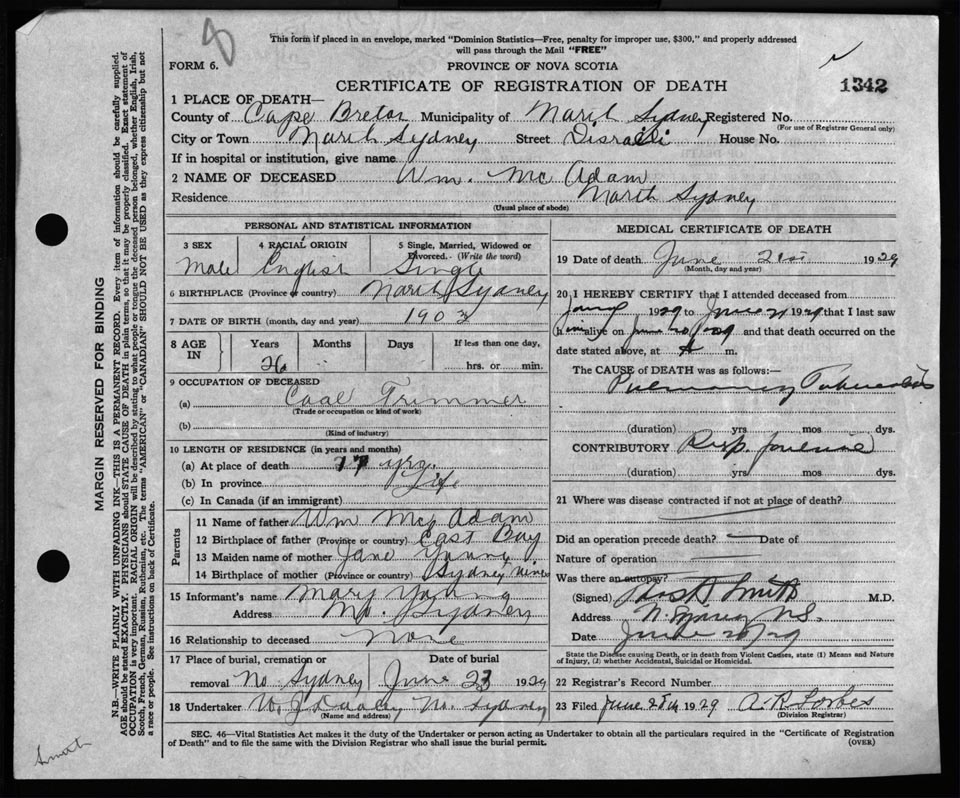 8
This form if placed in an envelope, marked "Dominion Statistics—Free, penalty for improper use, $300," and properly addressed
will pass through the Mail "FREE"
FORM 6.
PROVINCE OF NOVA SCOTIA
CERTIFICATE OF REGISTRATION OF DEATH
1342
1 PLACE OF DEATH—
County of Cape Breton Municipality of North Sydney Registered No.
(For use of Registrar General only)
City or Town North Sydney Street Disraeli House No.
If in hospital or institution, give name
2 NAME OF DECEASED Wm. Mc Adam
Residence North Sydney
(Usual place of abode)
PERSONAL AND STATISTICAL INFORMATION
3 SEX 4 RACIAL ORIGIN 5 Single, Married, Widowed or
Divorced. (Write the word)
Male English Single
6 BIRTHPLACE (Province or country) North Sydney
7 DATE OF BIRTH (month, day and year) 1903
8 AGE IN Years Months Days If less than one day,
26 hrs. or min.
9 OCCUPATION OF DECEASED
(a) Coal Trimmer
(Trade or occupation or kind of work)
(b)
(Kind of industry)
10 LENGTH OF RESIDENCE (in years and months)
(a) At place of death yrs.
(b) In province Life
(c) In Canada (if an immigrant)
Parents
11 Name of father Wm Mc Adam
12 Birthplace of father (Province or country) East Bay
13 Maiden name of mother Jane Young
14 Birthplace of mother (Province or country) Sydney Mines
15 Informant's name Mary Young
Address No. Sydney
16 Relationship to deceased None
17 Place of burial, cremation or Date of burial
removal No Sydney June 23 1929
18 Undertaker No. Sydney
(Name and address)
MEDICAL CERTIFICATE OF DEATH
19 Date of death June 21st 1929
(Month, day and year)
20 I HEREBY CERTIFY that I attended deceased from
1929 to June 21 1929 that I last saw
h im alive on June 20 1929 and that death occurred on the
date stated above, at m.
The CAUSE of DEATH was as follows:—
Pulmonary Tuberculosis
(duration) yrs. mos dys.
CONTRIBUTORY Resp. failure
(duration) yrs mos dys.
21 Where was disease contracted if not at place of death?
Did an operation precede death? Date of
Nature of operation
Was there an autopsy?
(Signed) Smith M.D.
Address N. Sydney N.S.
Date June 20/29
State the Disease causing Death, or in death from Violent Causes, state (1) Means and Nature
of Injury, (2) whether Accidental, Suicidal or Homicidal.
22 Registrar's Record Number
23 Filed June 1929 A. R. Forbes
(Division Registrar)
SEC. 46—Vital Statistics Act makes it the duty of the Undertaker or person acting as Undertaker to obtain all the particulars required in the "Certificate of Registration
of Death" and to file the same with the Division Registrar who shall issue the burial permit.
(OVER)
MARGIN RESERVED FOR BINDING
N.B.—WRITE PLAINLY WITH UNFADING INK—THIS IS A PERMANENT RECORD. Every item of information should be carefully supplied.
AGE should be stated EXACTLY. PHYSICIANS should STATE CAUSE OF DEATH in plain terms, so that it may be properly classified. Exact statement of
OCCUPATION is very important. RACIAL ORIGIN will be described by stating to what people or tongue the deceased person belonged, whether English, Irish,
Scotch, French, German, Russian, Ruthenian, etc. The terms "AMERICAN" or "CANADIAN" SHOULD NOT BE USED as they express citizenship but not
a race or people. See instructions on back of Certificate.